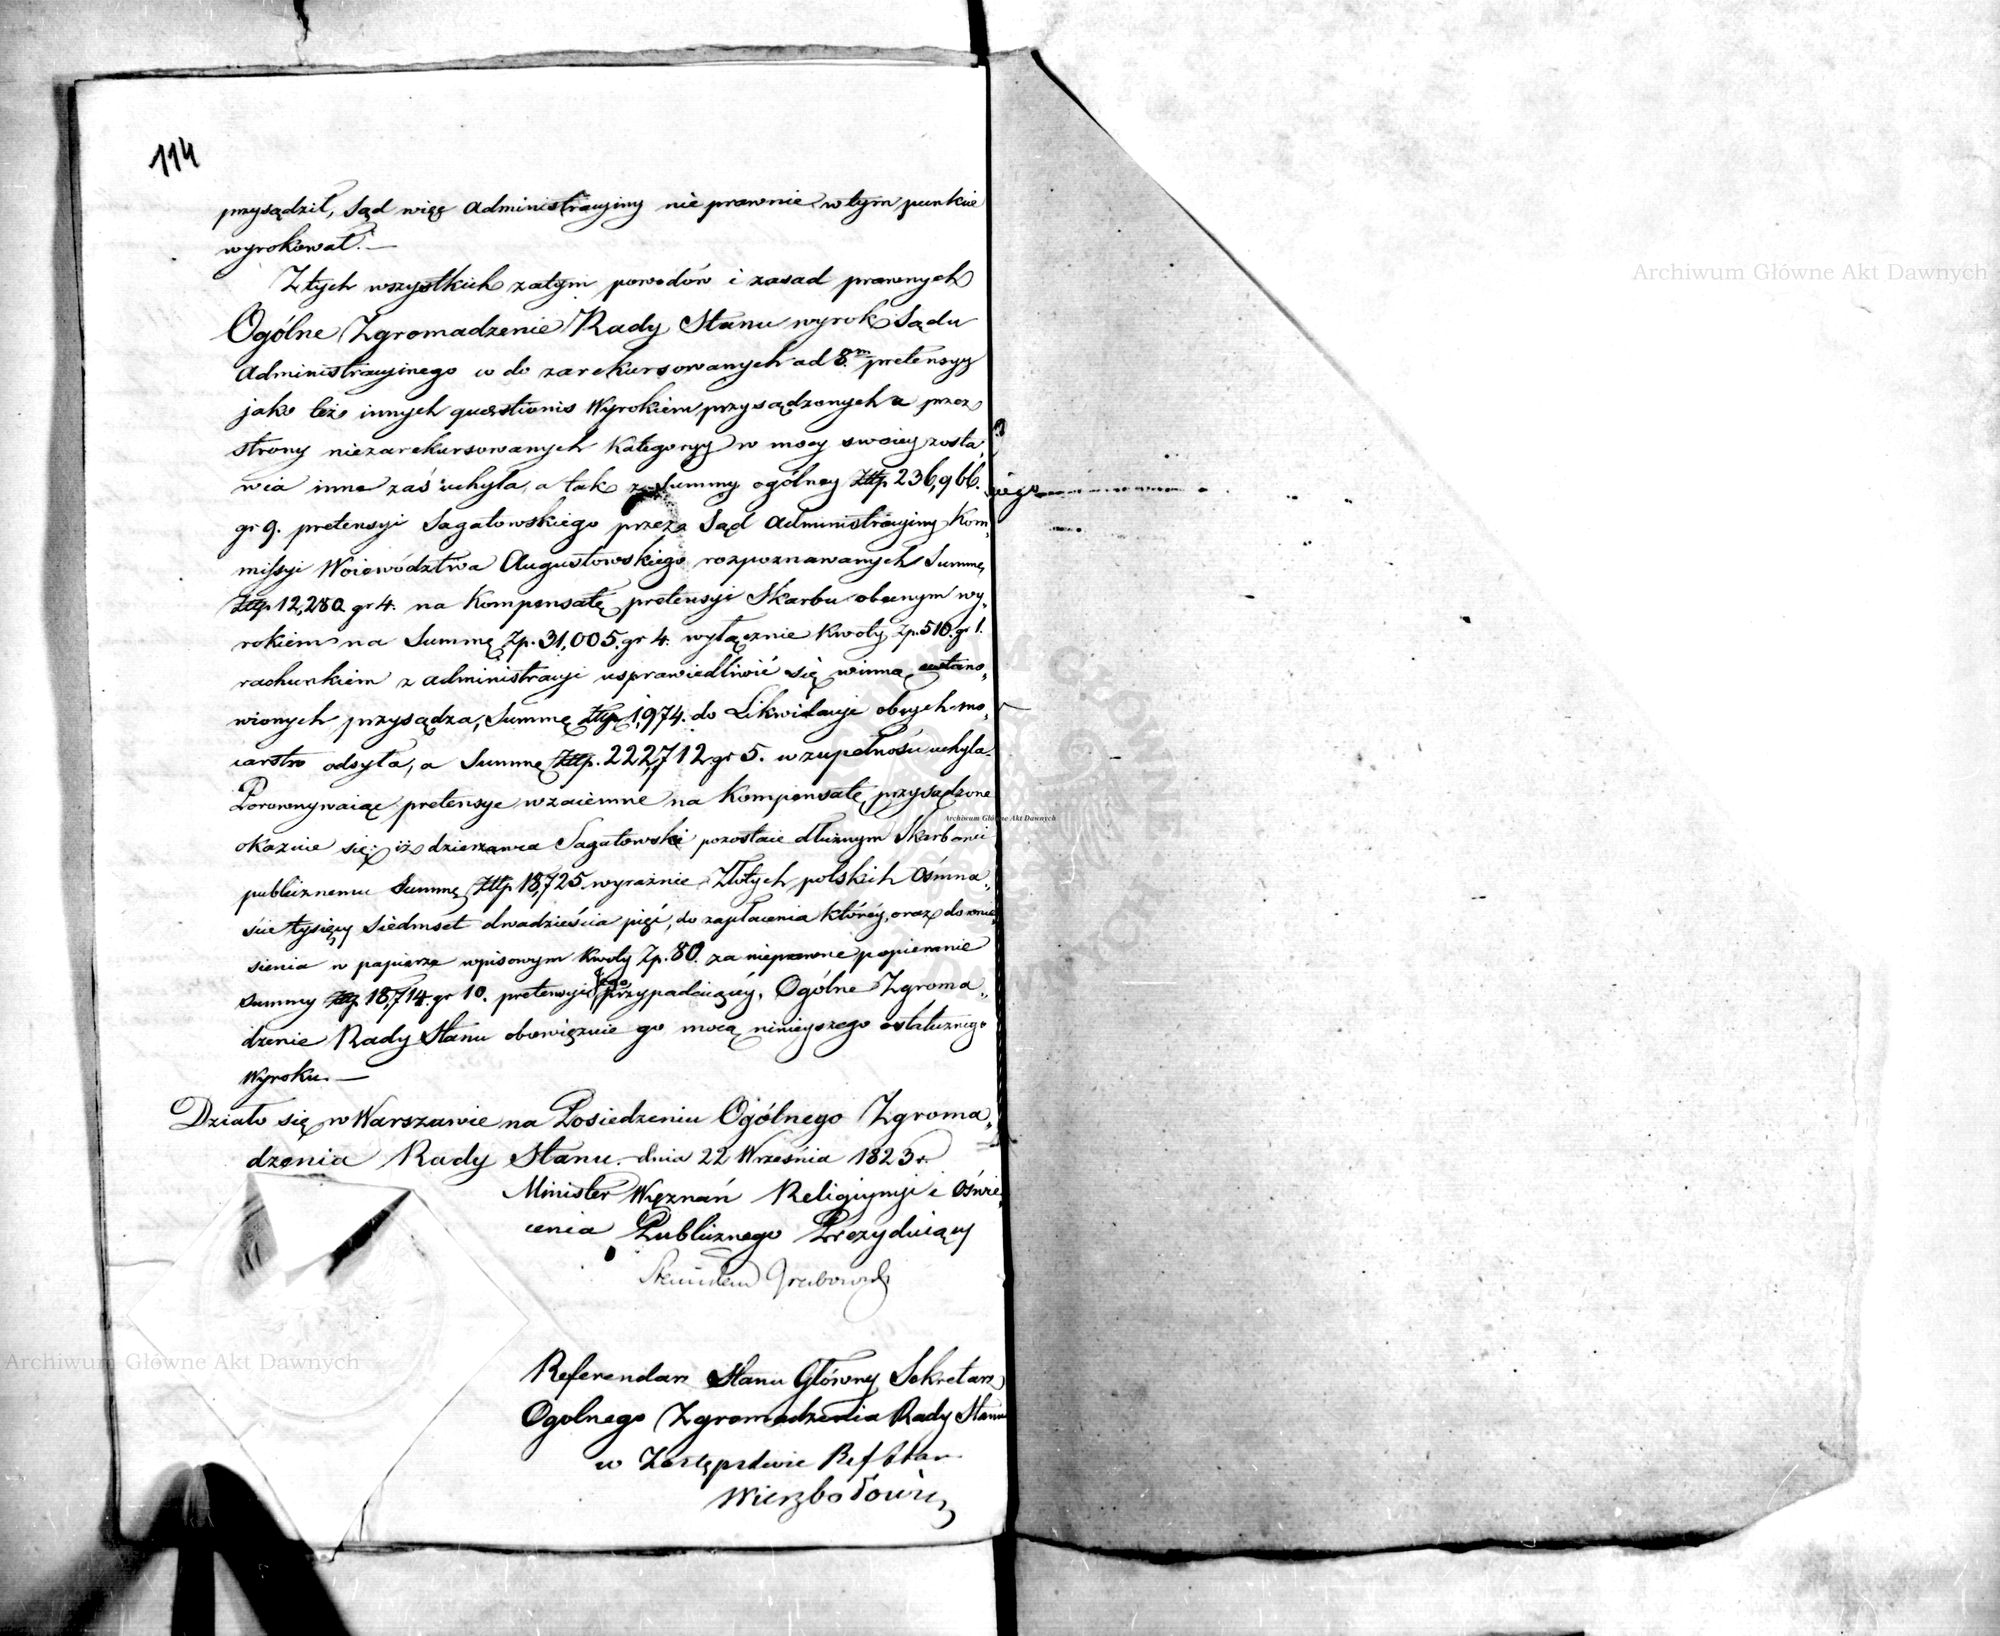 114
przysądził, Sąd więc Administracyiny nie prawnie w tym punkcie
wyrokował. —
Z tych wszystkich zatym powodów i zasad prawnych
Ogólne Zgromadzenie Rady Stanu wyrok Sądu
Administracyinego co do zarekursowanych ad 8m pretensyy
jako też innych quaestionis Wyrokiem przysądzonych a przez
strony niezarekursowanych Kategoryy w mocy swoiey zosta„
wia inne zaś uchyla, a tak z Summy ogólney Złp 236,966.
gr 9. pretensyi Sagatowskiego przez Sąd Administracyiny Kom„
missyi Woiewództwa Augustowskiego rozpoznawanych Summę
Złp 12,280 gr 4. na Kompensatę pretensyi Skarbu obecnym wy„
rokiem na Summę Zp. 31,005. gr 4. wyłącznie Kwoty Zp. 510. gr 1.
rachunkiem z administracyi usprawiedliwić się winną ustano„
wionych przysądza, Summę Złp 1,974. do Likwidacyi obcych mo„
carstw odsyła, a Summę Złp. 222,712 gr 5. w zupełności uchyla.
Porównywaiąc pretensye wzaiemne na Kompensatę przysądzone
okazuie się: iż dzierzawca Sagatowski pozostaie dłużnym Skarbowi
publicznemu Summę Złp 18,725. wyraźnie Złotych polskich Ośmna„
ście tysięcy siedmset dwadzieścia pięć, do zapłacenia którey, oraz do znie„
sienia w papierze wpisowym Kwoty Zp. 80. za nieprawne popieranie
summy Złp 18,714. gr 10. pretensyi Jego przypadaiącéy, Ogólne Zgroma„
dzenie Rady Stanu obowiązuie go mocą ninieyszego ostatecznego
Wyroku. —
Działo się w Warszawie na Posiedzeniu Ogólnego Zgroma„
dzenia Rady Stanu. dnia 22 Września 1823 r.
Minister Wyznań Religiynych i Oświe„
cenia Publicznego Prezyduiący
Stanisław Grabowski
Referendarz Stanu Główny Sekretarz
Ogolnego Zgromadzenia Rady Stanu
w Zastępstwie Ref Stan
Wierzbołowicz
Archiwum Główne Akt Dawnych
Archiwum Główne Akt Dawnych
Archiwum Główne Akt Dawnych